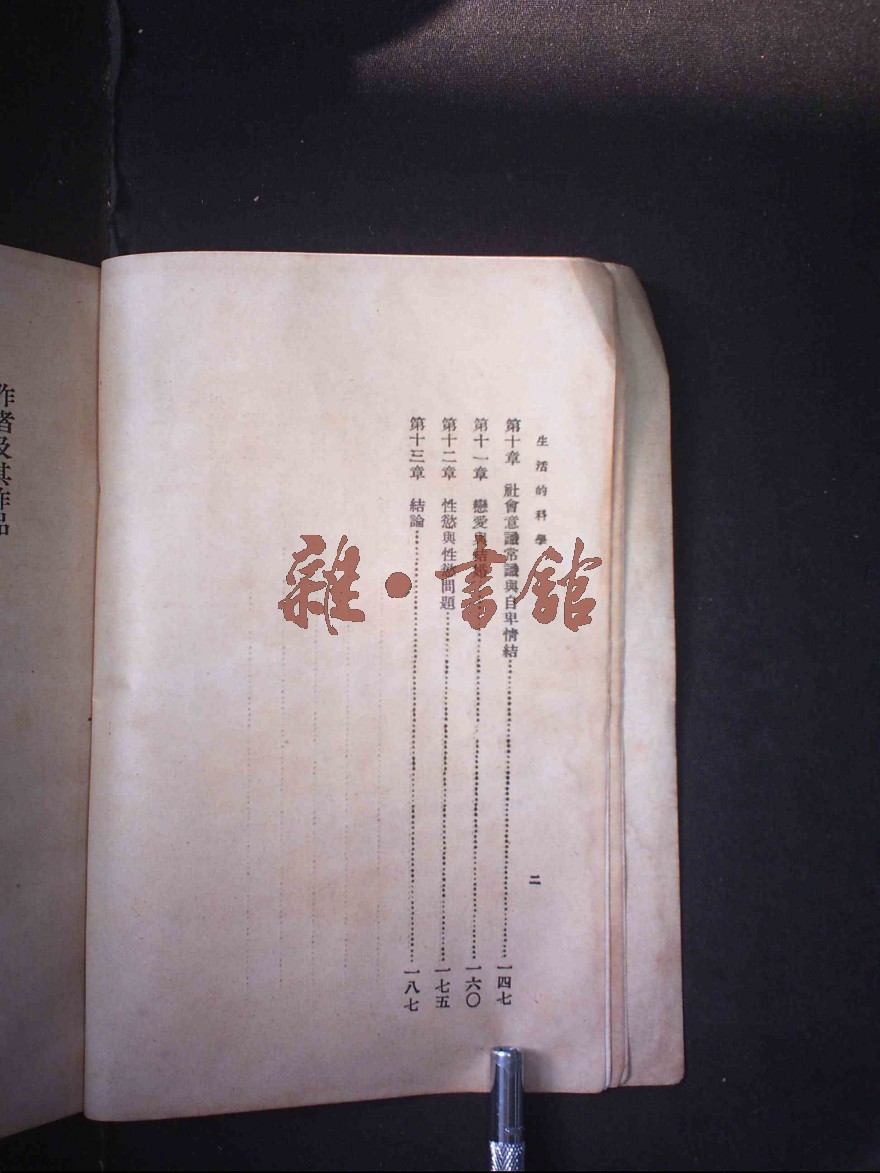 生活的科學
二
第十章 社會意識常識與自卑情結 一四七
第十一章 戀愛與結婚 一六〇
第十二章 性慾與性慾問題 一七五
第十三章 結論 一八七
作者及其作品
雜·書館